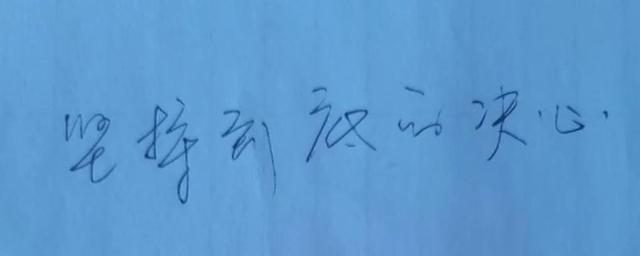 坚持到底的决心.